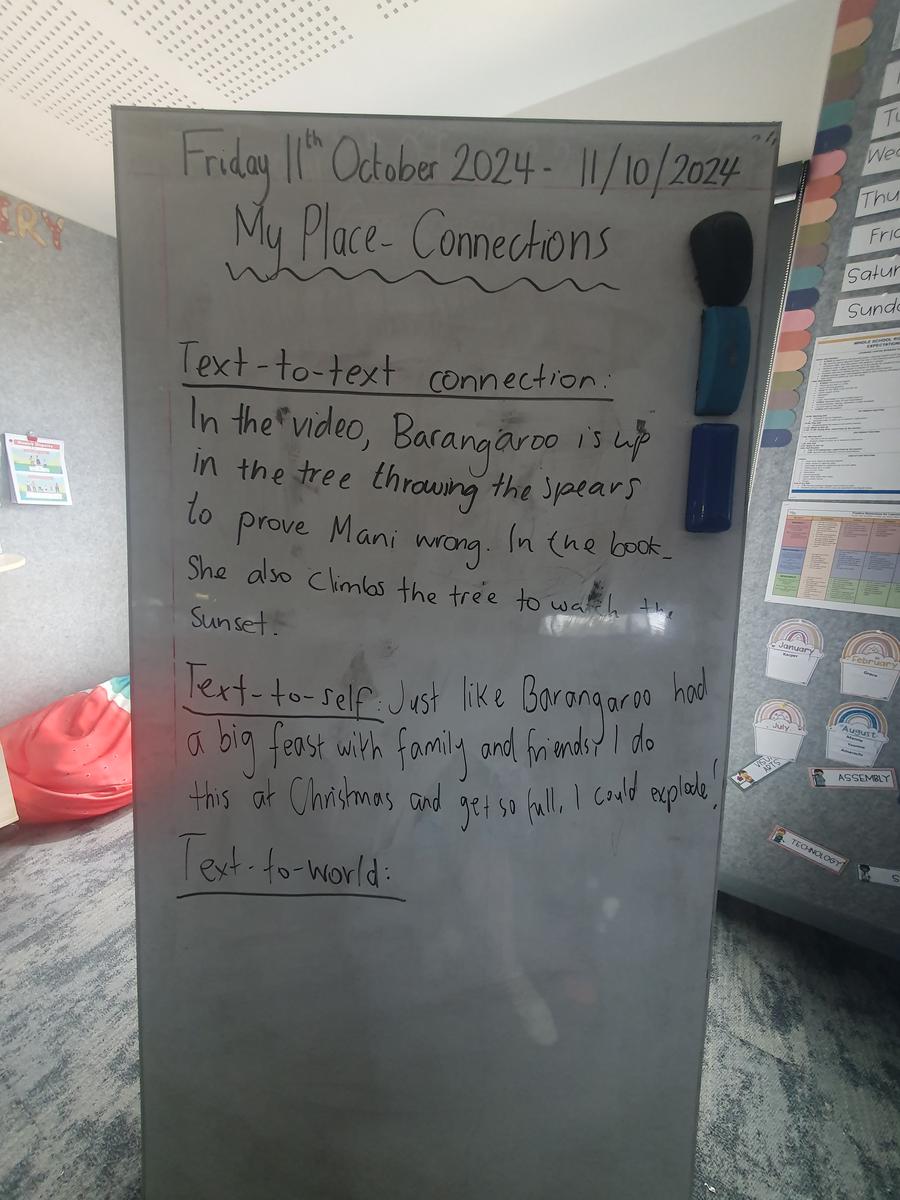 Friday 11th October 2024 - 11/10/2024
My Place - Connections
Text-to-text connection:
In the video, Barangaroo is up
in the tree throwing the spears
to prove Mani wrong. In the book
She also climbs the tree to watch the
Sunset.
Text-to-self: Just like Barangaroo had
a big feast with family and friends, I do
this at Christmas and get so full, I could explode!
Text-to-world:
ERY
Tu
Wed
Thu
Frid
Satur
Sunda
January
February
July
August
VISUAL ARTS
ASSEMBLY
TECHNOLOGY
S